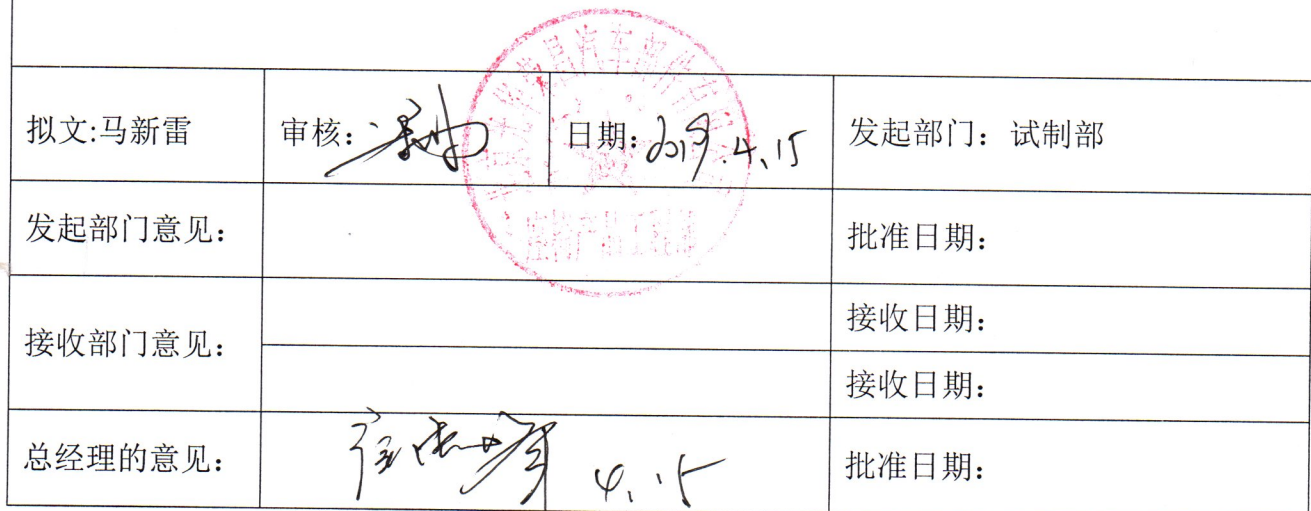 汽车部件有
拟文:马新雷 审核: 日期:2019.4.15 发起部门：试制部
产品工程部
发起部门意见： 批准日期：
接收部门意见： 接收日期：
接收日期：
总经理的意见： 4.15 批准日期：